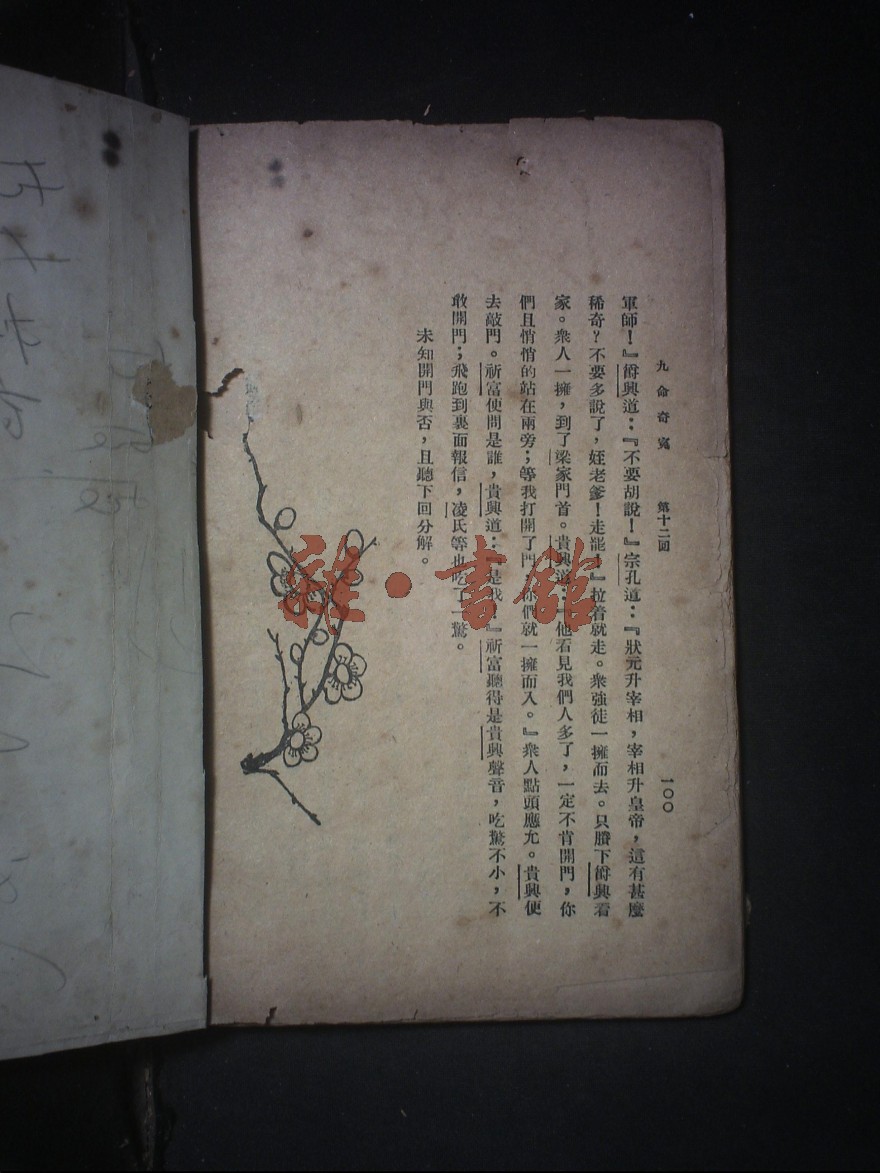 九命奇冤　第十二回　一〇〇
軍師！』爵興道：『不要胡說！』宗孔道：『狀元升宰相，宰相升皇帝，這有甚麼
稀奇？不要多說了，姪老爹！走罷！』拉着就走。衆強徒一擁而去。只賸下爵興看
家。衆人一擁，到了梁家門首。貴興道：『他看見我們人多了，一定不肯開門，你
們且悄悄的站在兩旁；等我打開了門，你們就一擁而入。』衆人點頭應允。貴興便
去敲門。祈富便問是誰，貴興道：『是我！』祈富聽得是貴興聲音，吃驚不小，不
敢開門；飛跑到裏面報信，凌氏等也吃了一驚。
未知開門與否，且聽下回分解。
雜·書館